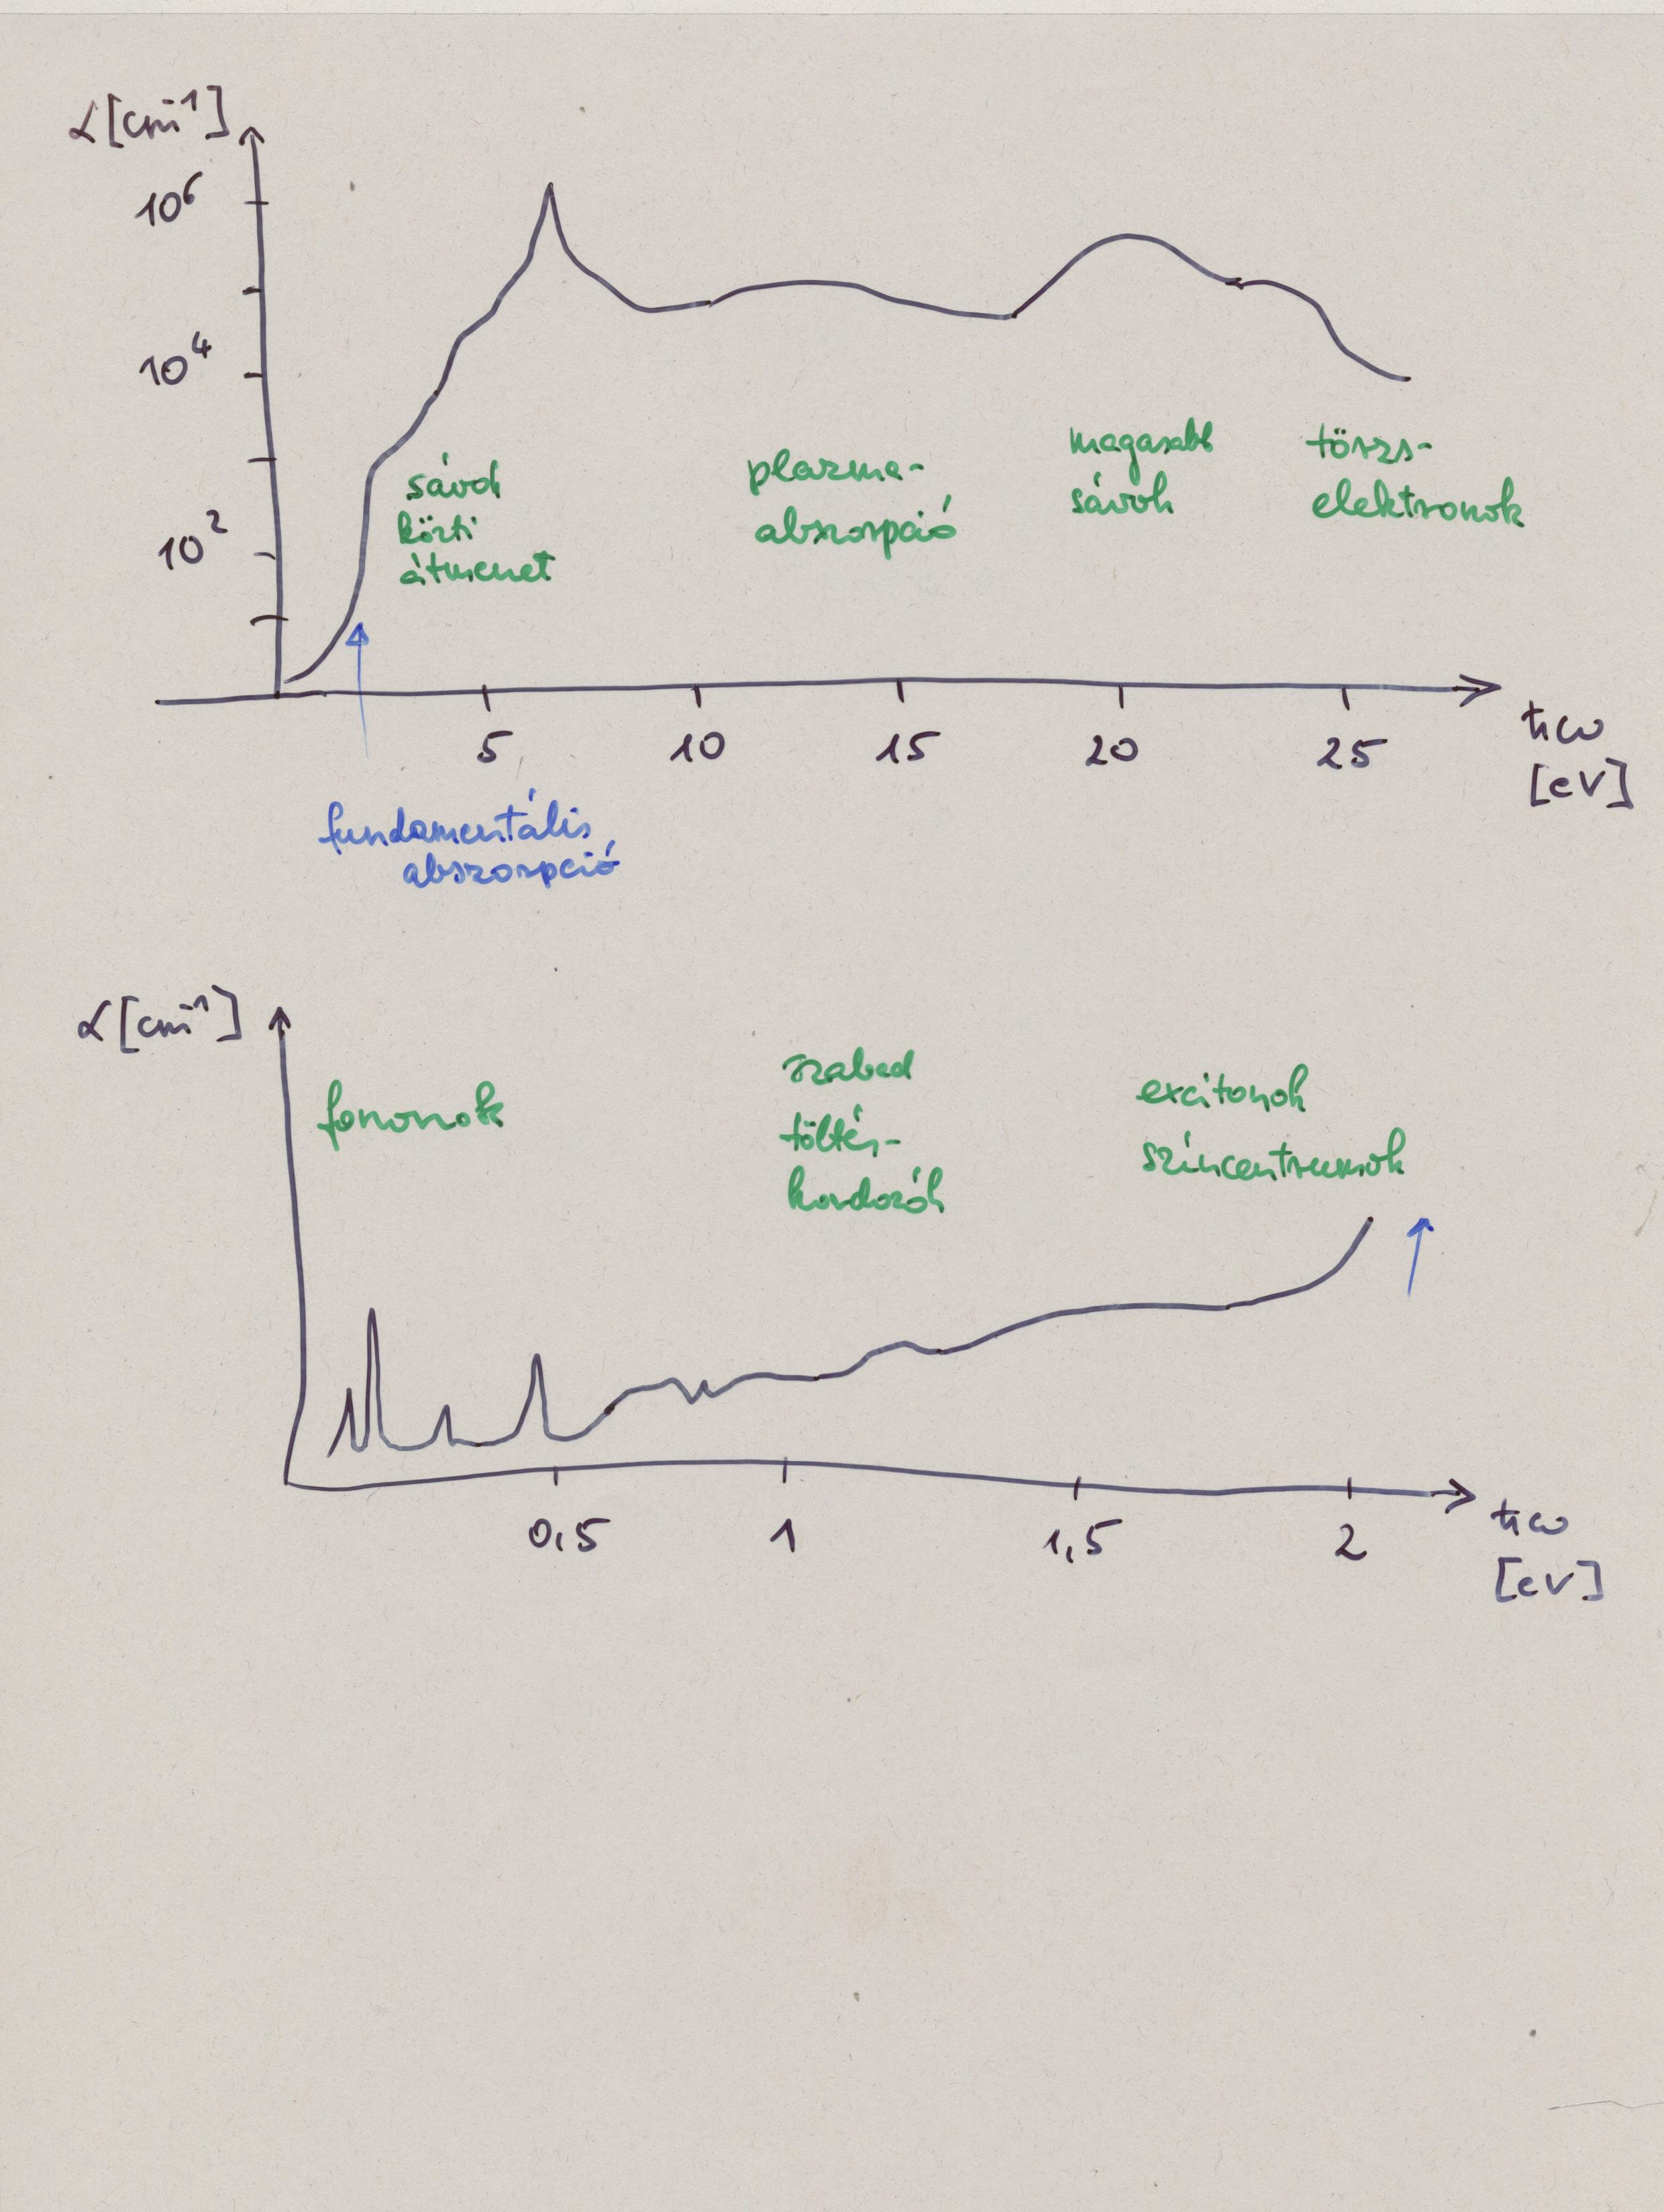 α [cm⁻¹]
10⁶
10⁴
10²
sávok
közti
átmenet
plazma-
abszorpció
magasabb
sávok
törzs-
elektronok
5
10
15
20
25
ħω
[eV]
fundamentális
abszorpció
α [cm⁻¹]
fononok
szabad
töltés-
hordozók
excitonok
színcentrumok
0,5
1
1,5
2
ħω
[eV]